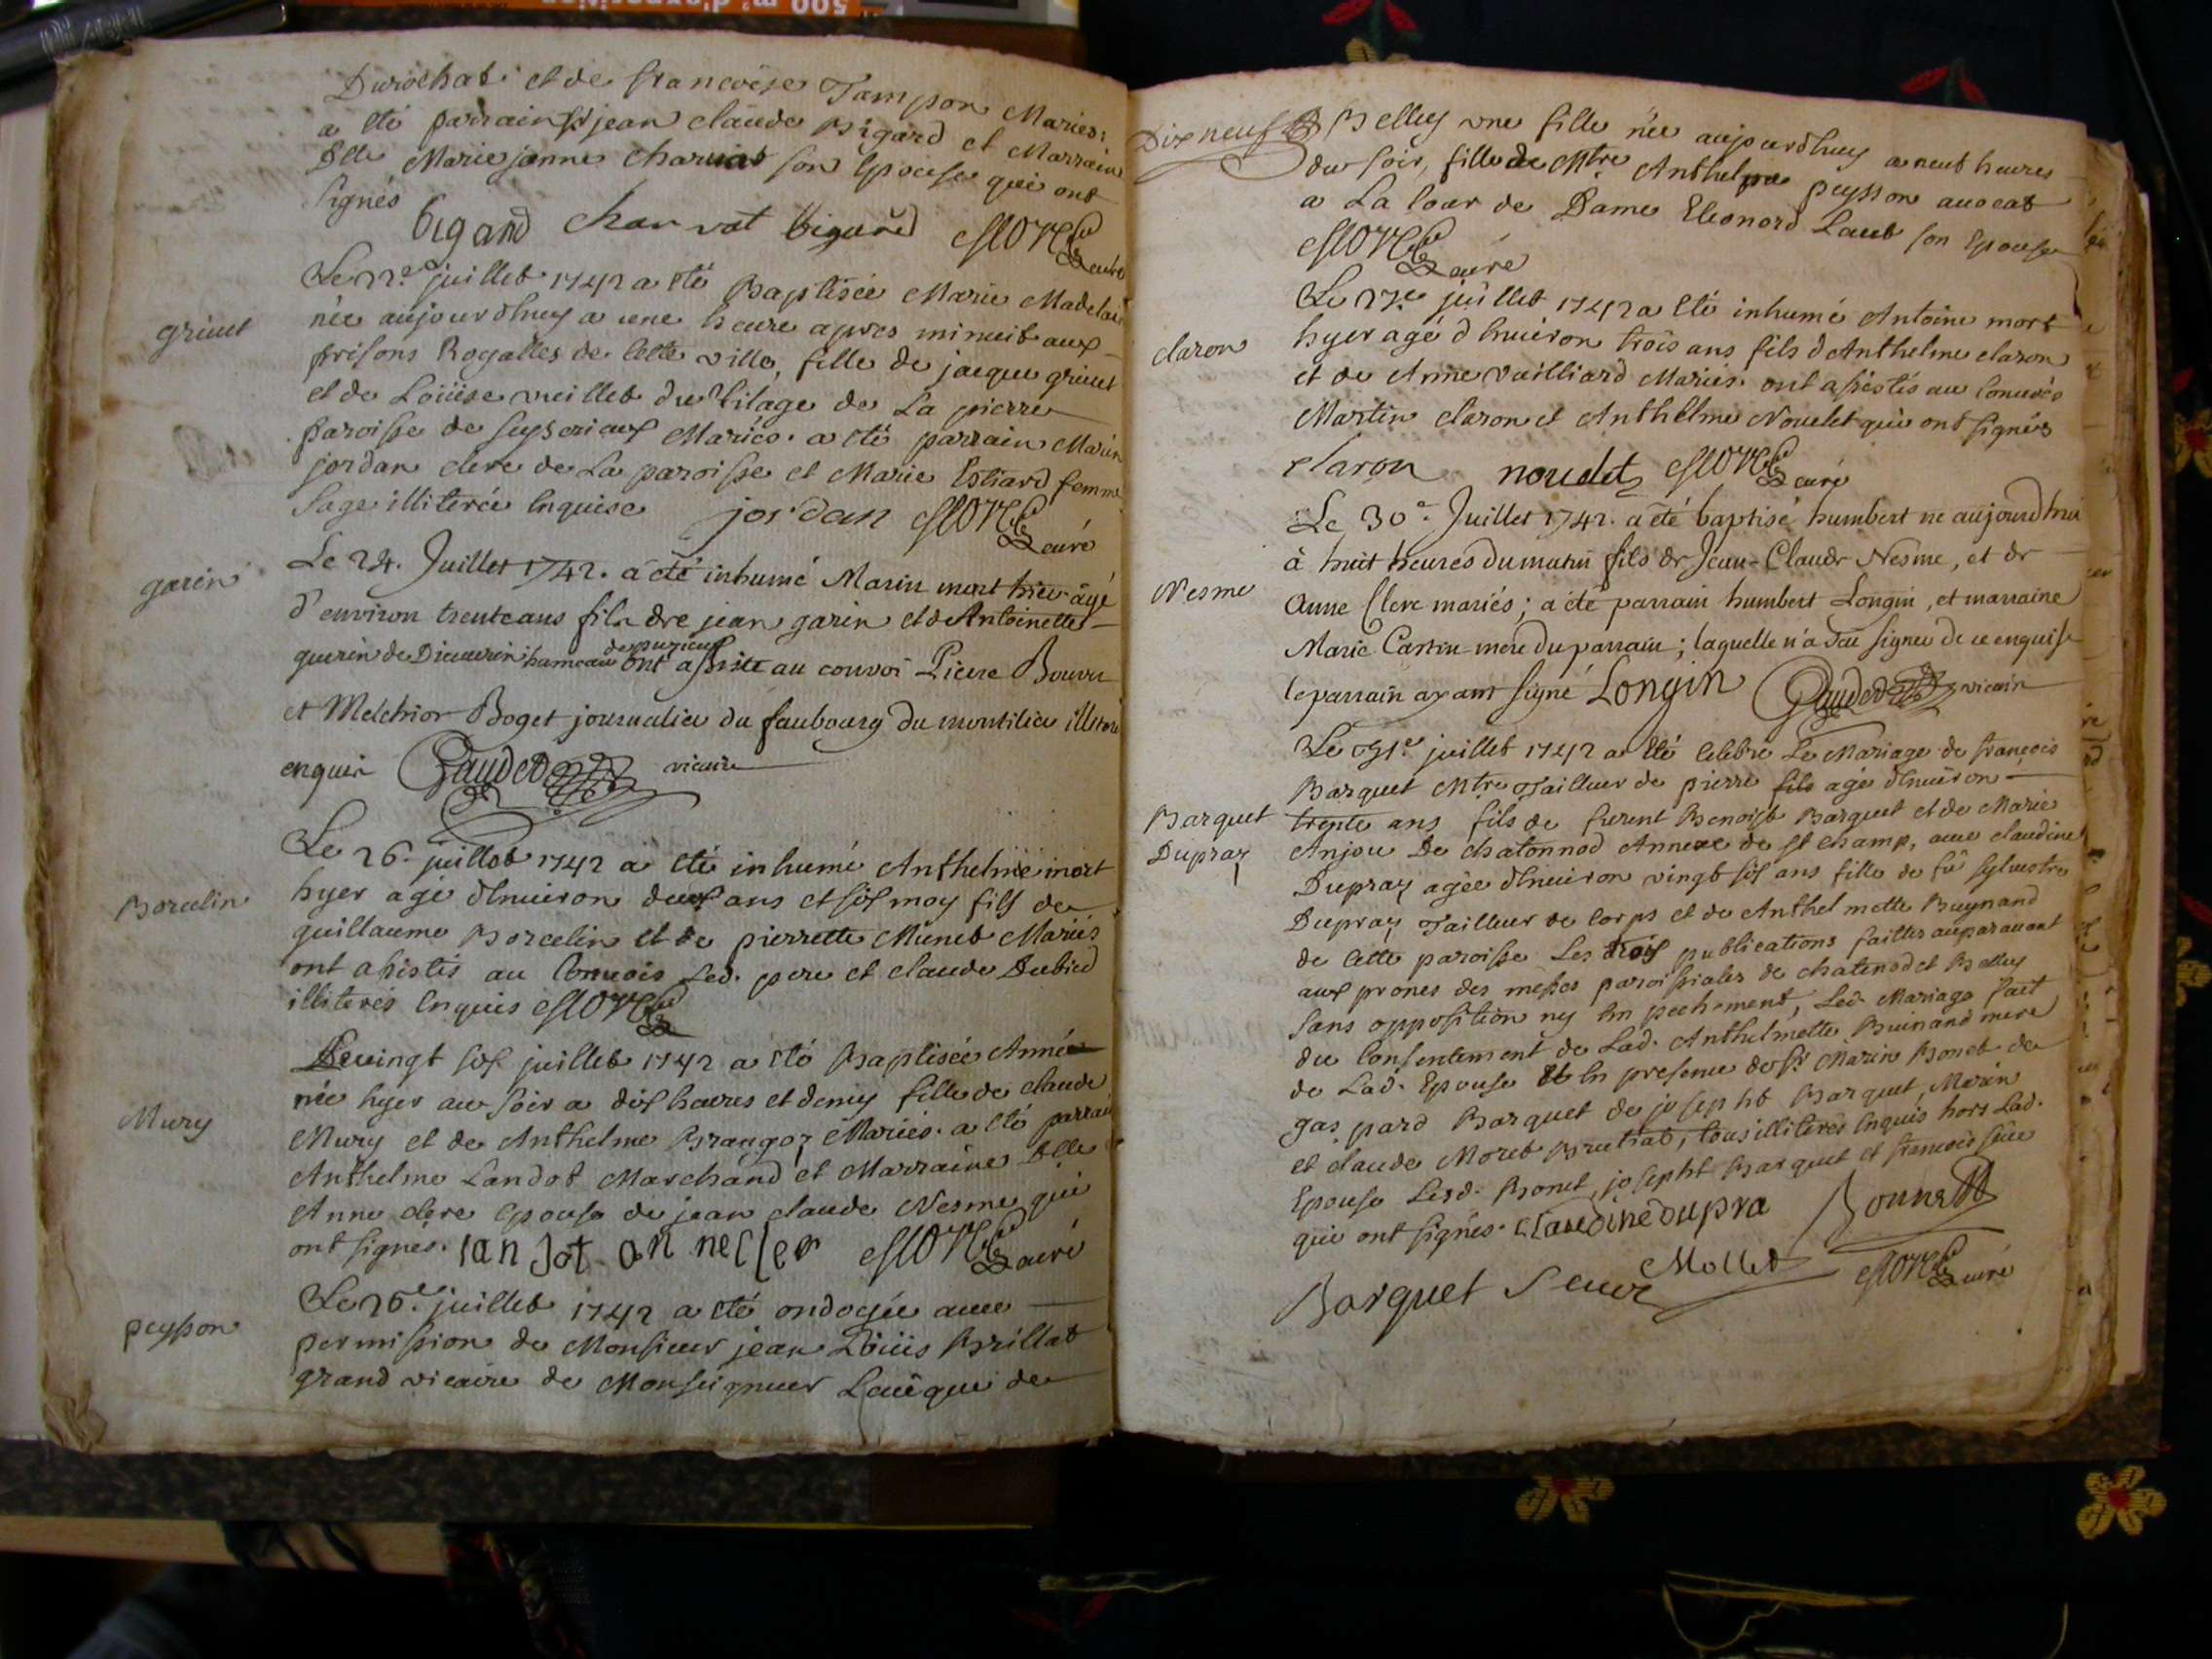 500 m² d'exposition
Durochat et de francoise Tampon Mariés.
a été parrain sr jean claude Bigard et Marraine
Dlle Marie janne charvat son Epouse qui ont
signés
bigard charvat bigard curé
Le 22e juillet 1742 a été Baptisée Marie Madelaine
griuet
née aujourdhuy a une heure apres minuit aux
prisons Royalles de cette ville, fille de jaque griuet
et de Loüise du vilage de La pierre
paroisse de seyserieux Mariés. a été parrain Marin
jordan clerc de La paroisse et Marie Estiard femme
sage illiterée Enquise jordan curé
garin
Le 24. Juillet 1742. a été inhumé Marin mort hier âgé
d'environ trente ans fils de jean garin et de Antoinette
guerin de hameau de puzieux ont assisté au convoi Pierre
et Melchior Boget journalier du faubourg du
enquis Gaudet vicaire
Le 26e juillet 1742 a été inhumé Anthelme mort
Borcelin
hyer agé d'Enuiron deux ans et six moy fils de
guillaume Borcelin et de pierrette Munet Mariés
ont assistés au Conuois Led. pere et claude Dubied
illiterés Enquis
Le vingt six juillet 1742 a été Baptisée Anne
Mury
née hyer au soir a dix heures et demy fille de claude
Mury et de Anthelme Brangoz Mariés. a été parrain
Anthelme Landot Marchand et Marraine Dlle
Anne clerc Epouse de jean claude Nesme qui
ont signés. lan dot an ne cler curé
Le 26e juillet 1742 a été ondoyée auec
peysson
permission de Monsieur jean Loüis Brillat
grand vicaire de Monseigneur L'euêque de
Dix neuf Belley une fille née aujourdhuy a neuf heures
du soir, fille de Mtre Anthelme peysson auocat
a La Cour de Dame Eleonord Laub son Epouse
curé
Le 27e juillet 1742 a été inhumé Antoine mort
claron
hyer agé d'Enuiron trois ans fils d'Anthelme claron
et de Anne vuilliard Mariés. ont assistés au Conuoÿs
Martin claron et Anthelme Nouelet qui ont signés
claron nouelet curé
Le 30e. Juillet 1742. a été baptisé humbert né aujourd'hui
à huit heures du matin fils de Jean-Claude Nesme, et de
Nesme
Anne Clerc mariés; a été parrain humbert Longin, et marraine
Marie mere du parrain; laquelle n'a sçu signer de ce enquise
le parrain ayant signé Longin Gaudet vicaire
Le 31e juillet 1742 a été Celebré Le Mariage de françois
Barquet Mtre Tailleur de pierre fils agé d'Enuiron
Barquet
Dupraz
trente ans fils de furent Benoist Barquet et de Marie
Anjou De chatonnod Annexe de st champ, auec claudine
Dupraz agée d'Enuiron vingt six ans fille de fû syluestre
Dupraz Tailleur de Corps et de Anthelmette Buynand
de Cette paroisse Les trois publications faittes auparauant
aux prones des messes paroissiales de chatonod et Belley
sans opposition ny Enpechement, Led. Mariage fait
du Consentement de Lad. Anthelmette Buinand mere
de Lad. Epouse Et En presence de sr Marin Bonet de
gaspard Barquet de josepht Barquet, Marin
et claude Moret Brutiat, tous illiterés Enquis hors Lad.
Epouse Lesd. Bonet, josepht Barquet et francois
qui ont signés. claudine dupra Bonnet
Barquet Mollet curé